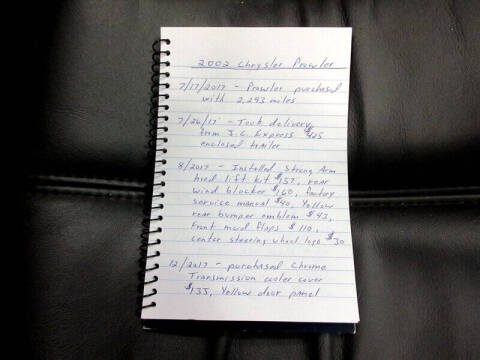 2002 Chrysler Prowler
7/17/2017 - Prowler purchased
with 2,293 miles
7/26/17 - Took delivery
from J.C. Express $425
enclosed trailer
8/2017 - Installed Strong Arm
hood lift kit $157, rear
wind blocker $160, factory
service manual $40, Yellow
rear bumper emblem $43,
front mud flaps $110,
center steering wheel logo $30
12/2017 - purchased Chrome
Transmission cooler cover
$135, Yellow door panel